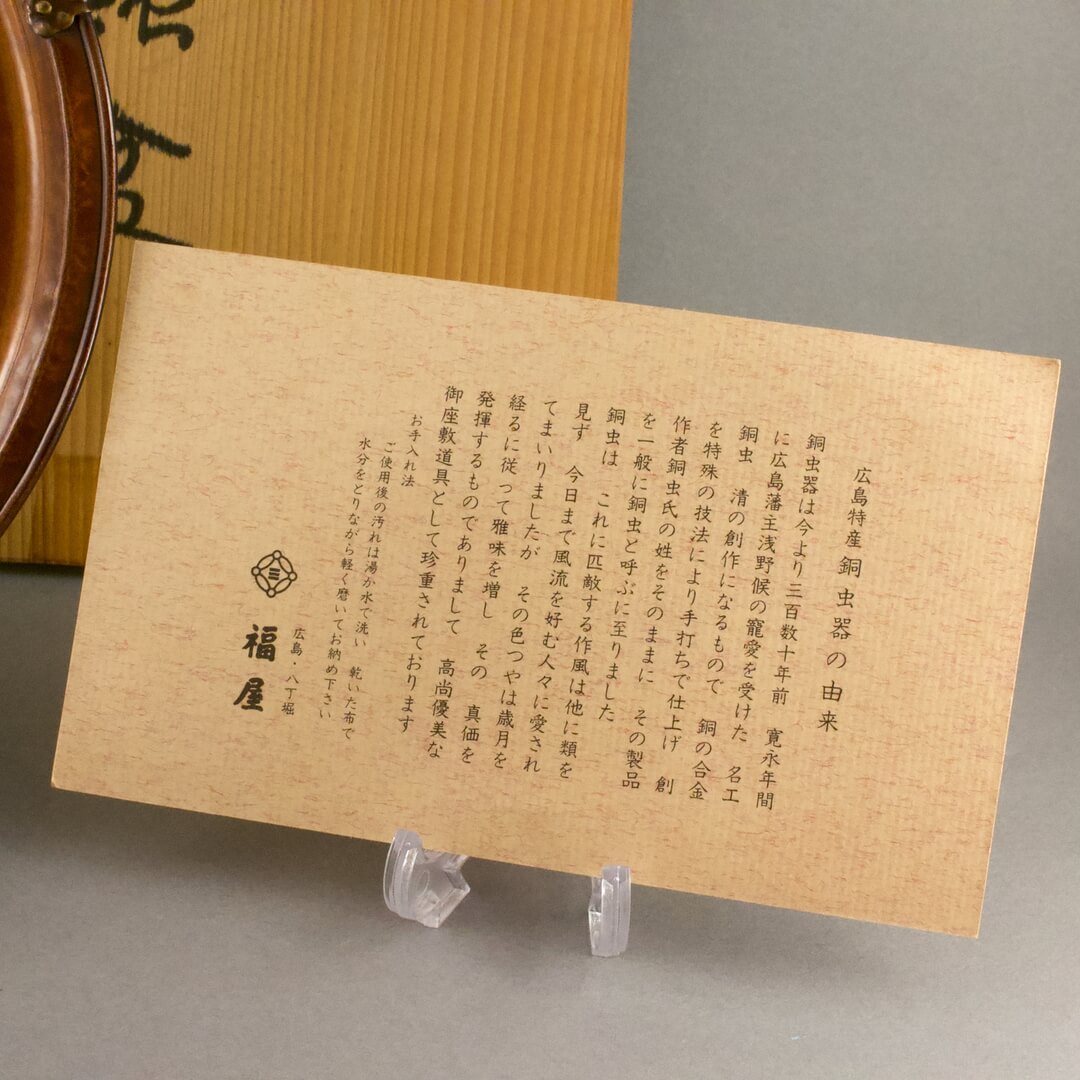 広島特産 銅虫器の由来
銅虫器は今より三百数十年前 寛永年間
に広島藩主浅野候の寵愛を受けた 名工
銅虫 清の創作になるもので 銅の合金
を特殊の技法により手打ちで仕上げ 創
作者銅虫氏の姓をそのままに その製品
を一般に銅虫と呼ぶに至りました
銅虫は これに匹敵する作風は他に類を
見ず 今日まで風流を好む人々に愛され
てまいりましたが その色つやは歳月を
経るに従って雅味を増し その 真価を
発揮するものでありまして 高尚優美な
御座敷道具として珍重されております
お手入れ法
ご使用後の汚れは湯か水で洗い 乾いた布で
水分をとりながら軽く磨いてお納め下さい
広島・八丁堀
三
福屋